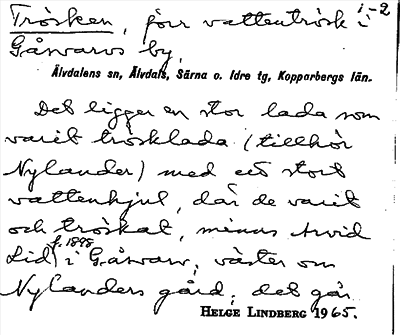 Trösken, förr vattentrösk i 1-2
Gåsvarvs by,
Älvdalens sn, Älvdals, Särna o. Idre tg, Kopparbergs län.
Det ligger en stor lada som
varit trösklada (tillhör
Nylander) med ett stort
vattenhjul, där de varit
och tröskat, minns Arvid
Lid f. 1898 i Gåsvarv, väster om
Nylanders gård, det går
HELGE LINDBERG 1965.